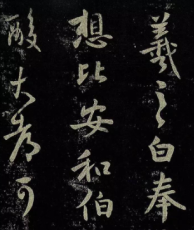 羲之白奉
想比安和伯
酸大可